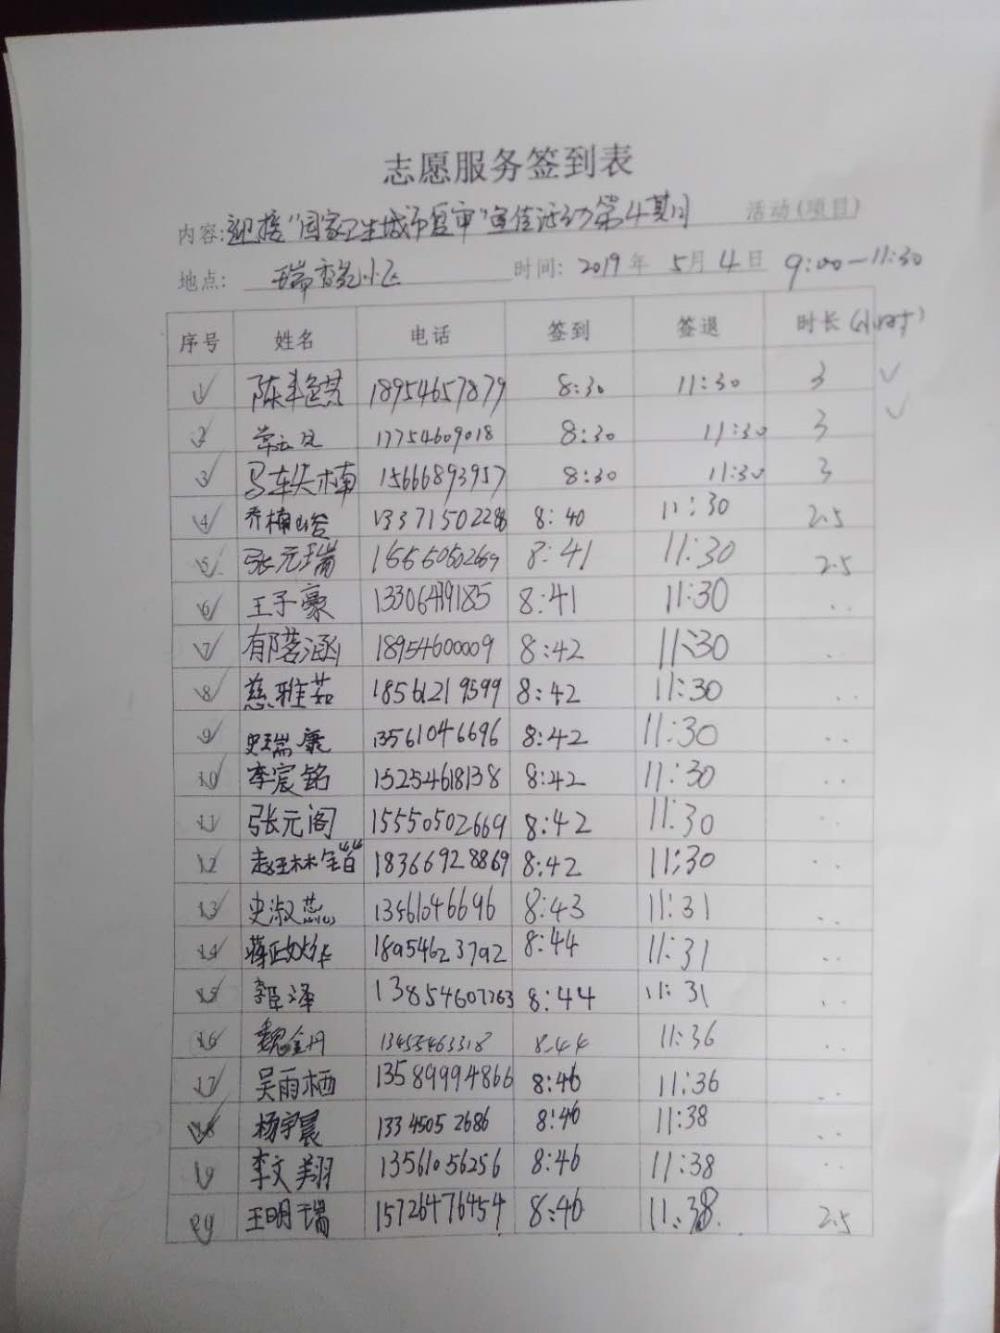 志愿服务签到表
内容:迎接"国家卫生城市复审"宣传活动第4期 活动(项目)
地点: 瑞香苑小区 时间: 2019年 5月4日 9:00—11:30
序号 姓名 电话 签到 签退 时长
1 陈 18954657879 8:30 11:30 3
2 17754609018 8:30 11:30 3
3 马 楠 15666893957 8:30 11:30 3
4 乔楠 8:40 11:30 2.5
5 张元瑞 8:41 11:30 2.5
6 王子豪 8:41 11:30 ..
7 郁茗涵 18954600009 8:42 11:30 ..
8 慈雅茹 18561219599 8:42 11:30 ..
9 史瑞康 13561046696 8:42 11:30 ..
10 李宸铭 15254618138 8:42 11:30 ..
11 张元阁 15550502669 8:42 11:30 ..
12 赵 18366928869 8:42 11:30 ..
13 史淑燕 13561046696 8:43 11:31 ..
14 蒋 18954623792 8:44 11:31 ..
15 泽 8:44 11:31 ..
16 魏金丹 13455463318 8:44 11:36 ..
17 吴雨栖 13589994866 8:46 11:36 ..
18 杨宇晨 13345052686 8:46 11:38 ..
19 李文翔 13561056256 8:46 11:38 ..
20 王明瑞 15726476454 8:46 11:38 2.5